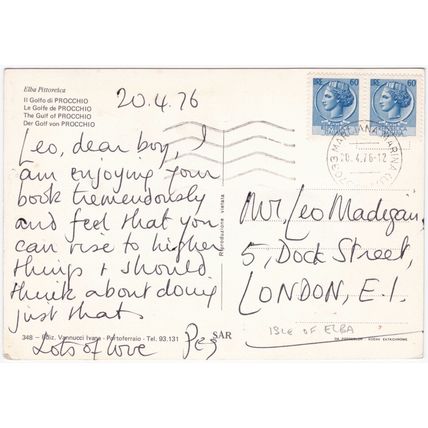 Elba Pittoresca
Il Golfo di PROCCHIO
Le Golfe de PROCCHIO
The Gulf of PROCCHIO
Der Golf von PROCCHIO
20.4.76
Leo, dear boy, I
am enjoying your
book tremendously
and feel that you
can rise to higher
things & should
think about doing
just that.
Lots of love Peg
348 - Ediz. Vannucci Ivana - Portoferraio - Tel. 93.131
SAR
Riproduzione vietata
60
60
MARCIANA MARINA
20.4.76-12
Mr. Leo Madigan,
5, Dock Street,
LONDON, E.1.
ISLE OF ELBA